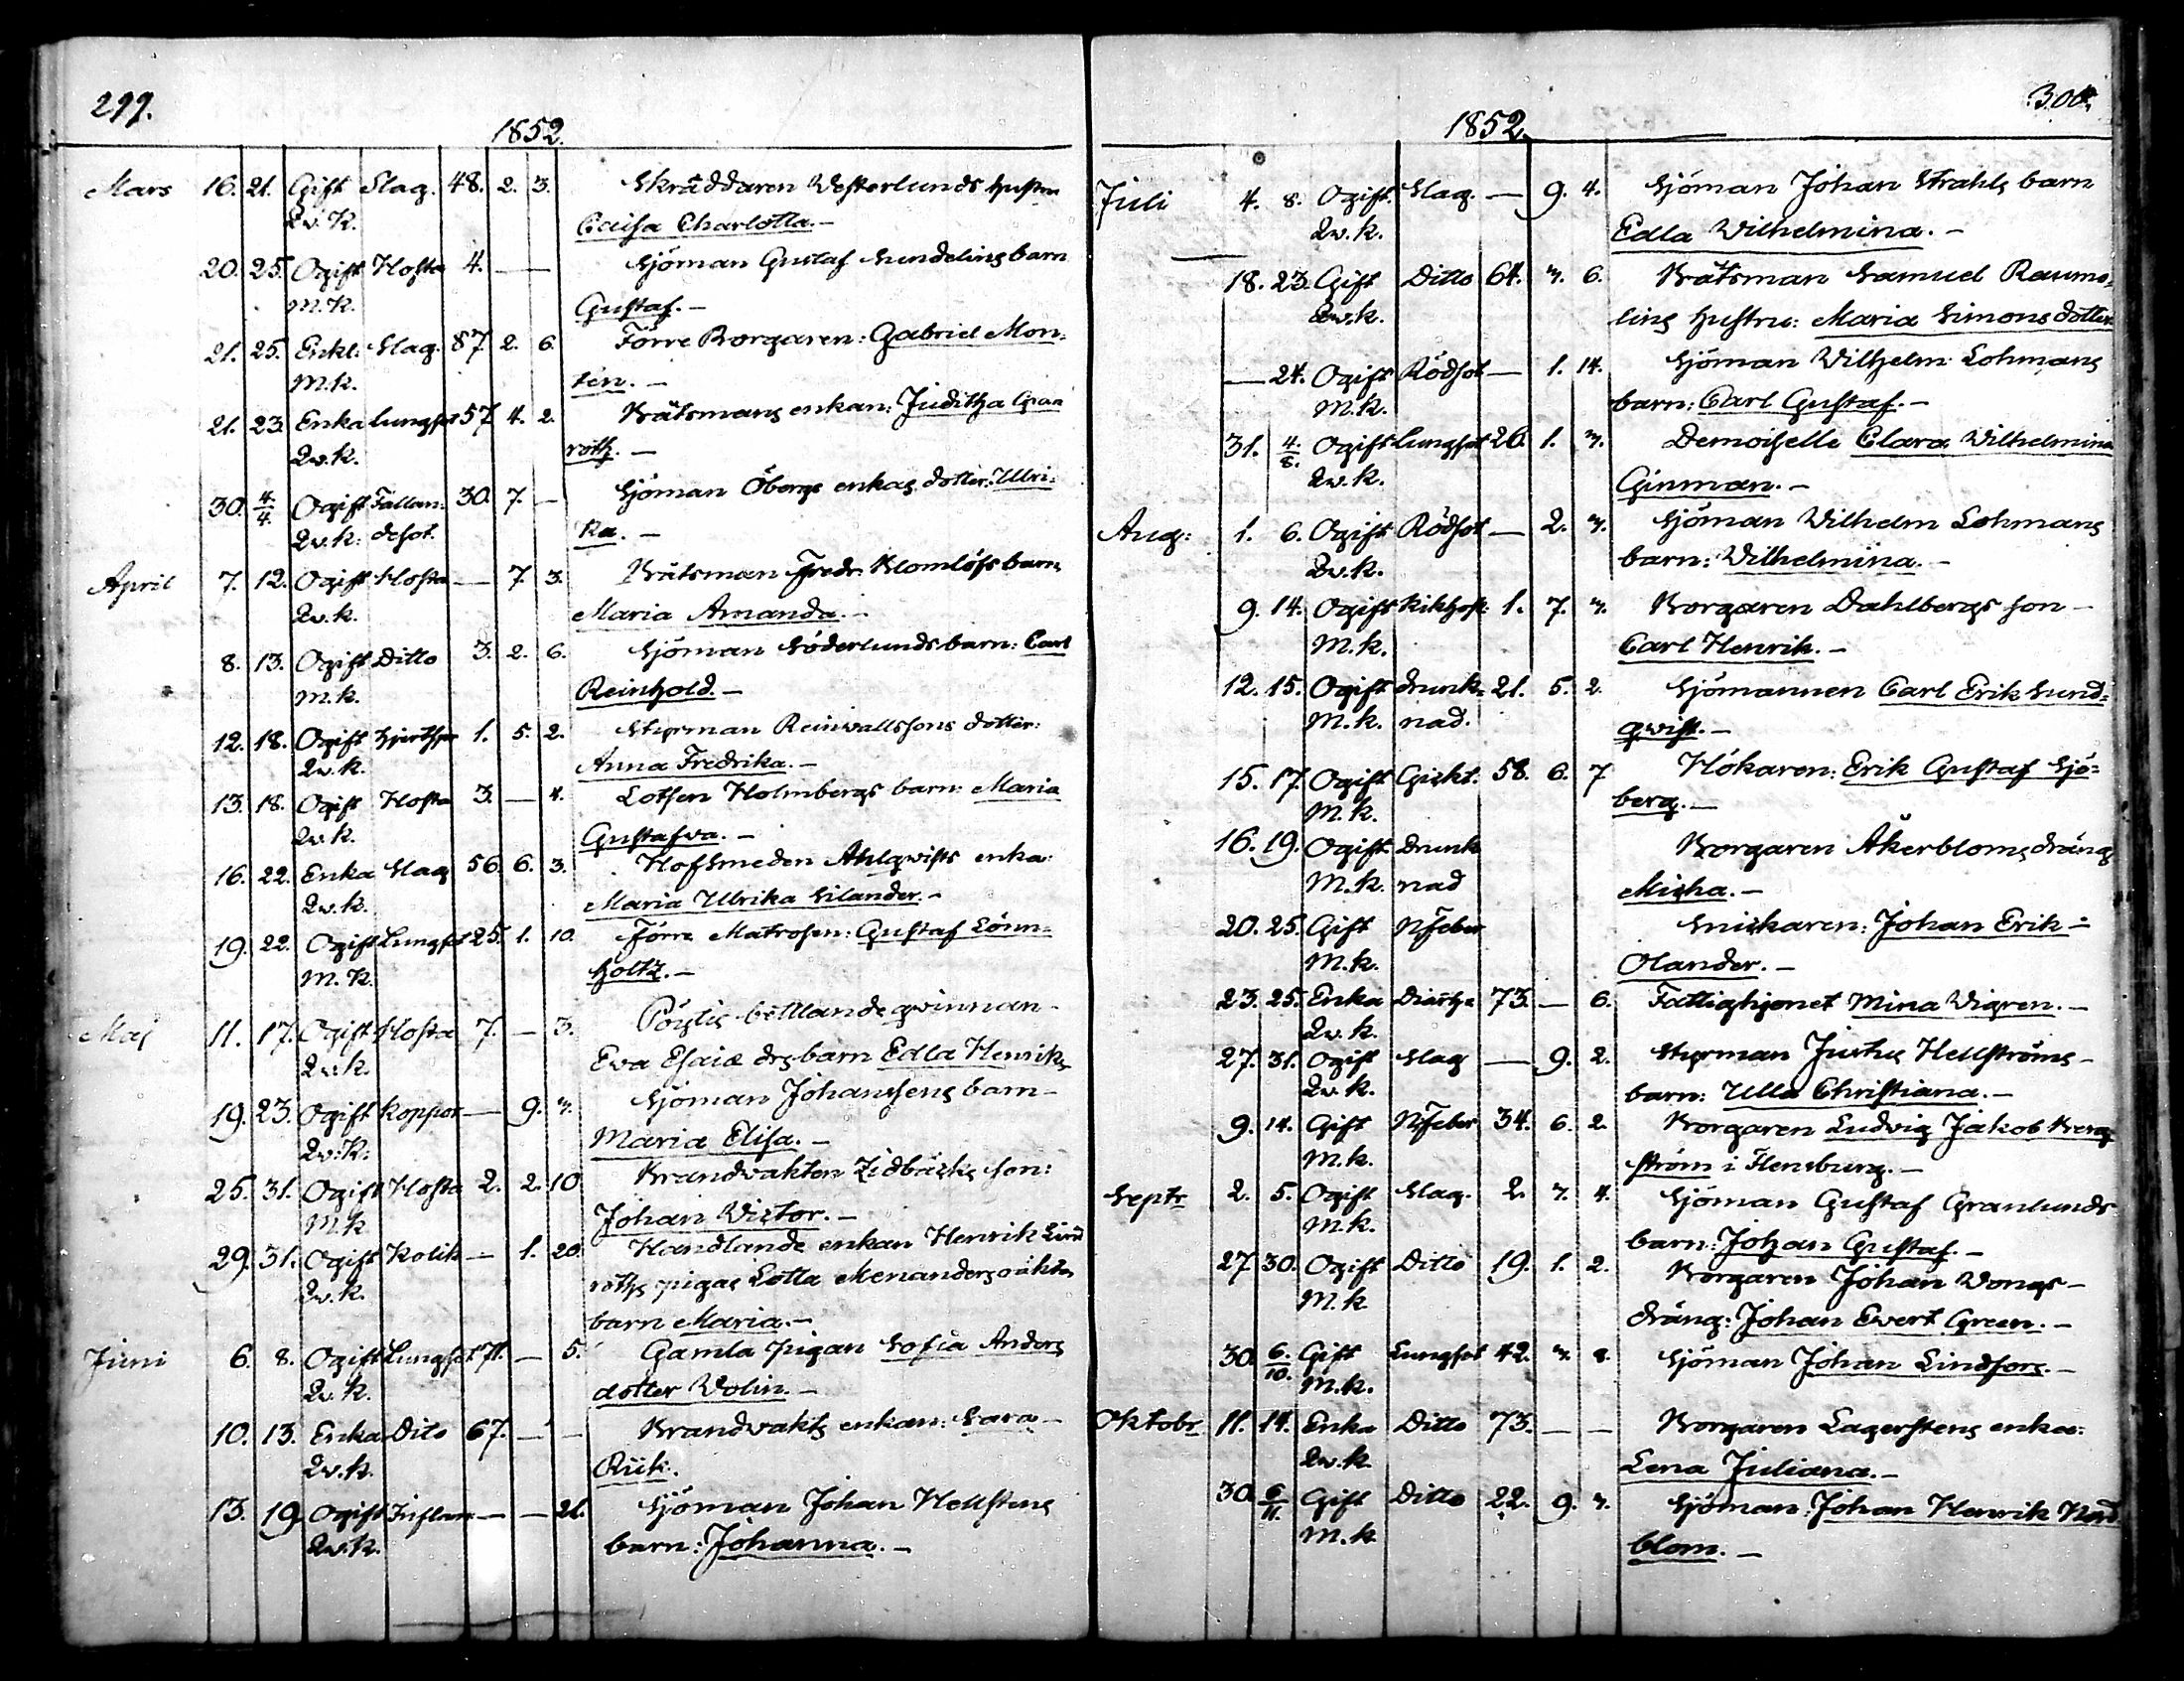 299.
1852.
Mars 16. 21. Gift Slag. 48. 2. 3. Skräddaren Westerlunds hustru
Qv. K. Caisa Charlotta. —
20. 25. Ogift Hosta 4. — — Sjöman Gustaf Sundelins barn
M. K. Gustaf. —
21. 25. Enkl: Slag. 87 2. 6. Förre Borgaren: Gabriel Mon-
M. k. tén. —
21. 23. Enka Lungsot 57 4. 2. Båtsmans enkan: Juditha Gran
Qv. k. roth. —
30. 4/4. Ogift Fallan- 30. 7. — Sjöman Öbergs enkas dotter: Ulri-
Qv. k: desot. ka. —
April 7. 12. Ogift Hosta — 7. 3. Båtsman Fredr. Blomlöfs barn
Qv. k. Maria Amanda. —
8. 13. Ogift Ditto 3. 2. 6. Sjöman Söderlunds barn: Carl
M. k. Reinhold. —
12. 18. Ogift 1. 5. 2. Styrman Reinvallssons dotter:
Qv. k. Anna Fredrika. —
13. 18. Ogift Hosta 3. — 4. Lotsen Holmbergs barn: Maria
Qv. k. Gustafva. —
16. 22. Enka Slag 56. 6. 3. Hofsmeden Ahlqwists enka:
Qv. k. Maria Ulrika Silander. —
19. 22. Ogift Lungsot 25. 1. 10. Förre Matrosen: Gustaf Lönn-
M. K. holtz. —
Maj 11. 17. Ogift Hosta 7. — 3. Pöytis bettlande qvinnan —
Qv. k. Eva Esaiæ drs barn Edla Henriks
19. 23. Ogift Koppor — 9. Sjöman Johanssens barn —
Qv. K. Maria Elisa. —
25. 31. Ogift Hosta 2. 2. 10 Brandvakten Zidbäcks son:
M. k Johan Victor. —
29. 31. Ogift Kolik — 1. 20. Handlande enkan Henrik Lind
Qv. k. roths pigas Lotta Menanders oäkta
barn Maria. —
Juni 6. 8. Ogift Lungsot 71. — 5. Gamla pigan Sofia Anders
Qv. k. dotter Wolin. —
10. 13. Enka Dito 67. — — Brandvakts enkan: Sara —
Qv. k. Rük.
13. 19. Ogift Inflam — — 21. Sjöman Johan Hellstens
Qv. k. barn: Johanna. —
300.
1852.
Juli 4. 8. Ogift. Slag. — 9. 4. Sjöman Johan Strahls barn
Qv. k. Edla Wilhelmina. —
18. 23. Gift Ditto 64. 6. Båtsman Samuel Raumo-
Qv. k. lins hustru: Maria Simonsdotter
— 24. Ogift Rödsot — 1. 14. Sjöman Wilhelm Lohmans
M. k. barn: Carl Gustaf. —
31. 4/8. Ogift Lungsot 26. 1. Demoiselle Clara Wilhelmina
Qv. k. Ginman. —
Aug: 1. 6. Ogift Rödsot — 2. Sjöman Wilhelm Lohmans
Qv. k. barn: Wilhelmina. —
9. 14. Ogift Kikhost. 1. 7. Borgaren Dahlbergs son —
M. k. Carl Henrik. —
12. 15. Ogift drunk- 21. 5. 2. Sjömannen Carl Erik Sund-
M. k. nad. qvist. —
15. 17. Ogift Gickt. 58. 6. 7 Hökaren: Erik Gustaf Sjö-
M. k. berg. —
16. 19. Ogift. drunk Borgaren Åkerbloms dräng
M. k. nad Micha. —
20. 25. Gift Nfeber Snickaren: Johan Erik —
M. k. Olander. —
23. 25. Enka 73. — 6. Fattighjonet Mina Wigren. —
Qv. k.
27. 31. Ogift Slag — 9. 2. Styrman Justus Hellströms —
Qv. k. barn: Ulla Christiana. —
9. 14. Gift Nfeber 34. 6. 2. Borgaren Ludvig Jakob Berg
M. k. ström i Flensburg. —
Septr 2. 5. Ogift Slag. 2. 4. Sjöman Gustaf Granlunds
M. k. barn: Johan Gustaf. —
27 30. Ogift Ditto 19. 1. 2. Borgaren Johan Wongs —
M. k dräng: Johan Evert Green. —
30. 6/10. Gift Lungsot 42. 8. Sjöman Johan Lindfors. —
M. k.
Oktobr 11. 14. Enka Ditto 73. — — Borgaren Lagerstens enka:
Qv. k. Lena Juliana. —
30. 6/11. Gift Ditto 22. 9. Sjöman: Johan Henrik Nord
M. k blom. —